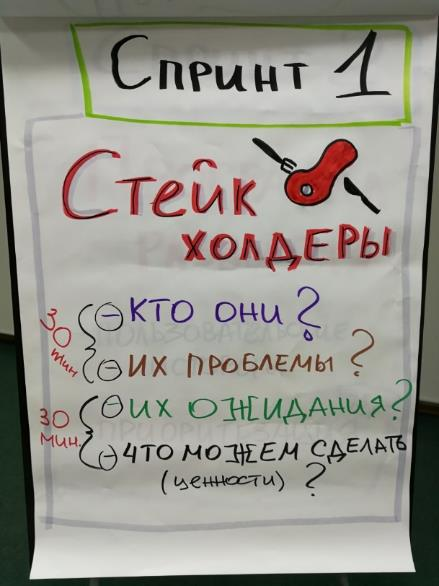 Спринт 1
Стейк
холдеры
30 мин
- кто они?
- их проблемы?
30 мин.
- их ожидания?
- что можем сделать
(ценности) ?